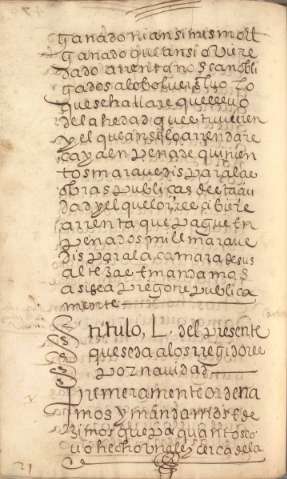 ganado ni ansi mismo el
ganado que ansi oviere
dado a renta no sean obli
gados a lo
que se hallare que llevo
de la hedad que tuvieren
y el que ansi lo arrendare
caya en pena de quinien
tos maravedis para las
obras publicas desta ciu
dad y el que
a renta que pague en
pena dos mill marave
dis para la camara de sus
altezas e mandamos
asi se a pregone publica
mente
titulo, L. del presente
que se da a los regidores
por navidad
Primeramente ordena
mos y mandamos e de
zimos que por quanto
vo hecho cerca de la
21